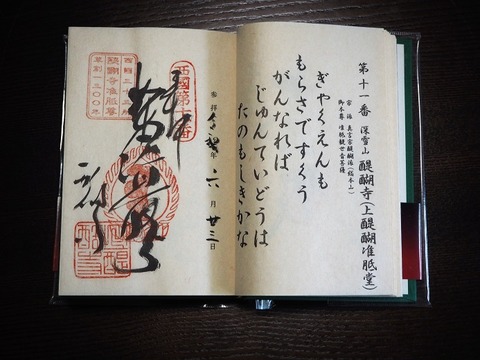 第十一番 深雪山 醍醐寺(上醍醐准胝堂)
宗派 真言宗醍醐派(総本山)
御本尊 准胝観世音菩薩
ぎゃくえんも
もらさですくう
がんなれば
じゅんていどうは
たのもしきかな
年 六月 廿三日
西國第十一番
奉拝
西国三十三所
草創1300年